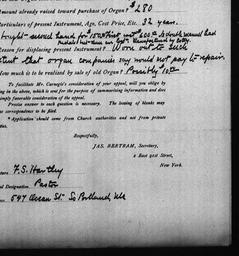 Amount already raised toward purchase of Organ? $250
Particulars of present Instrument, Age, Cost Price, Etc. 32 years.
bought second hand for
Reason for displacing present Instrument? Worn out to such
extent that organ companies say would not pay to repair.
How much is to be realized by sale of old Organ? Possibly
To facilitate Mr. Carnegie's consideration of your appeal, will you please oblige by
ing in the above, which is used for the purpose of summarizing information and does
imply favorable consideration of the appeal.
Precise answer to each question is necessary. The leaving of blanks may
correspondence to be filed.
*Application should come from Church authorities and not from private
Respectfully,
JAS. BERTRAM, Secretary,
2 East 91st Street,
New York.
F. S. Hartley
Designation. Pastor
547 Ocean St. So Portland, Me